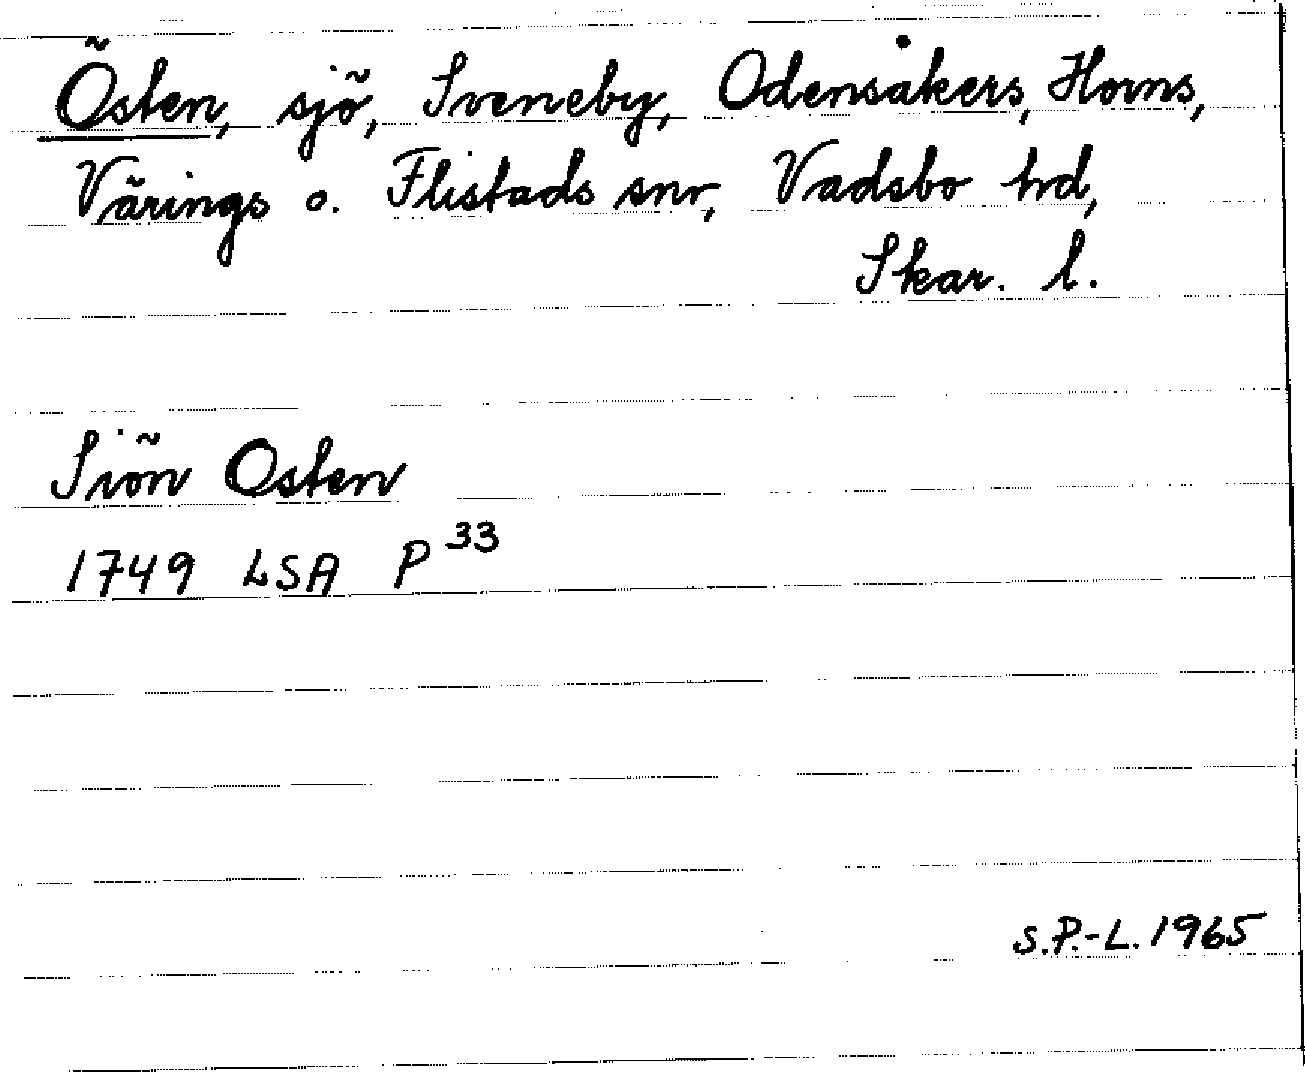 Östen, sjö, Sveneby, Odensåkers, Horns,
Värings o. Flistads snr, Vadsbo hd,
Skar. l.
Siön Osten
1749 LSA P 33
S.P.-L. 1965